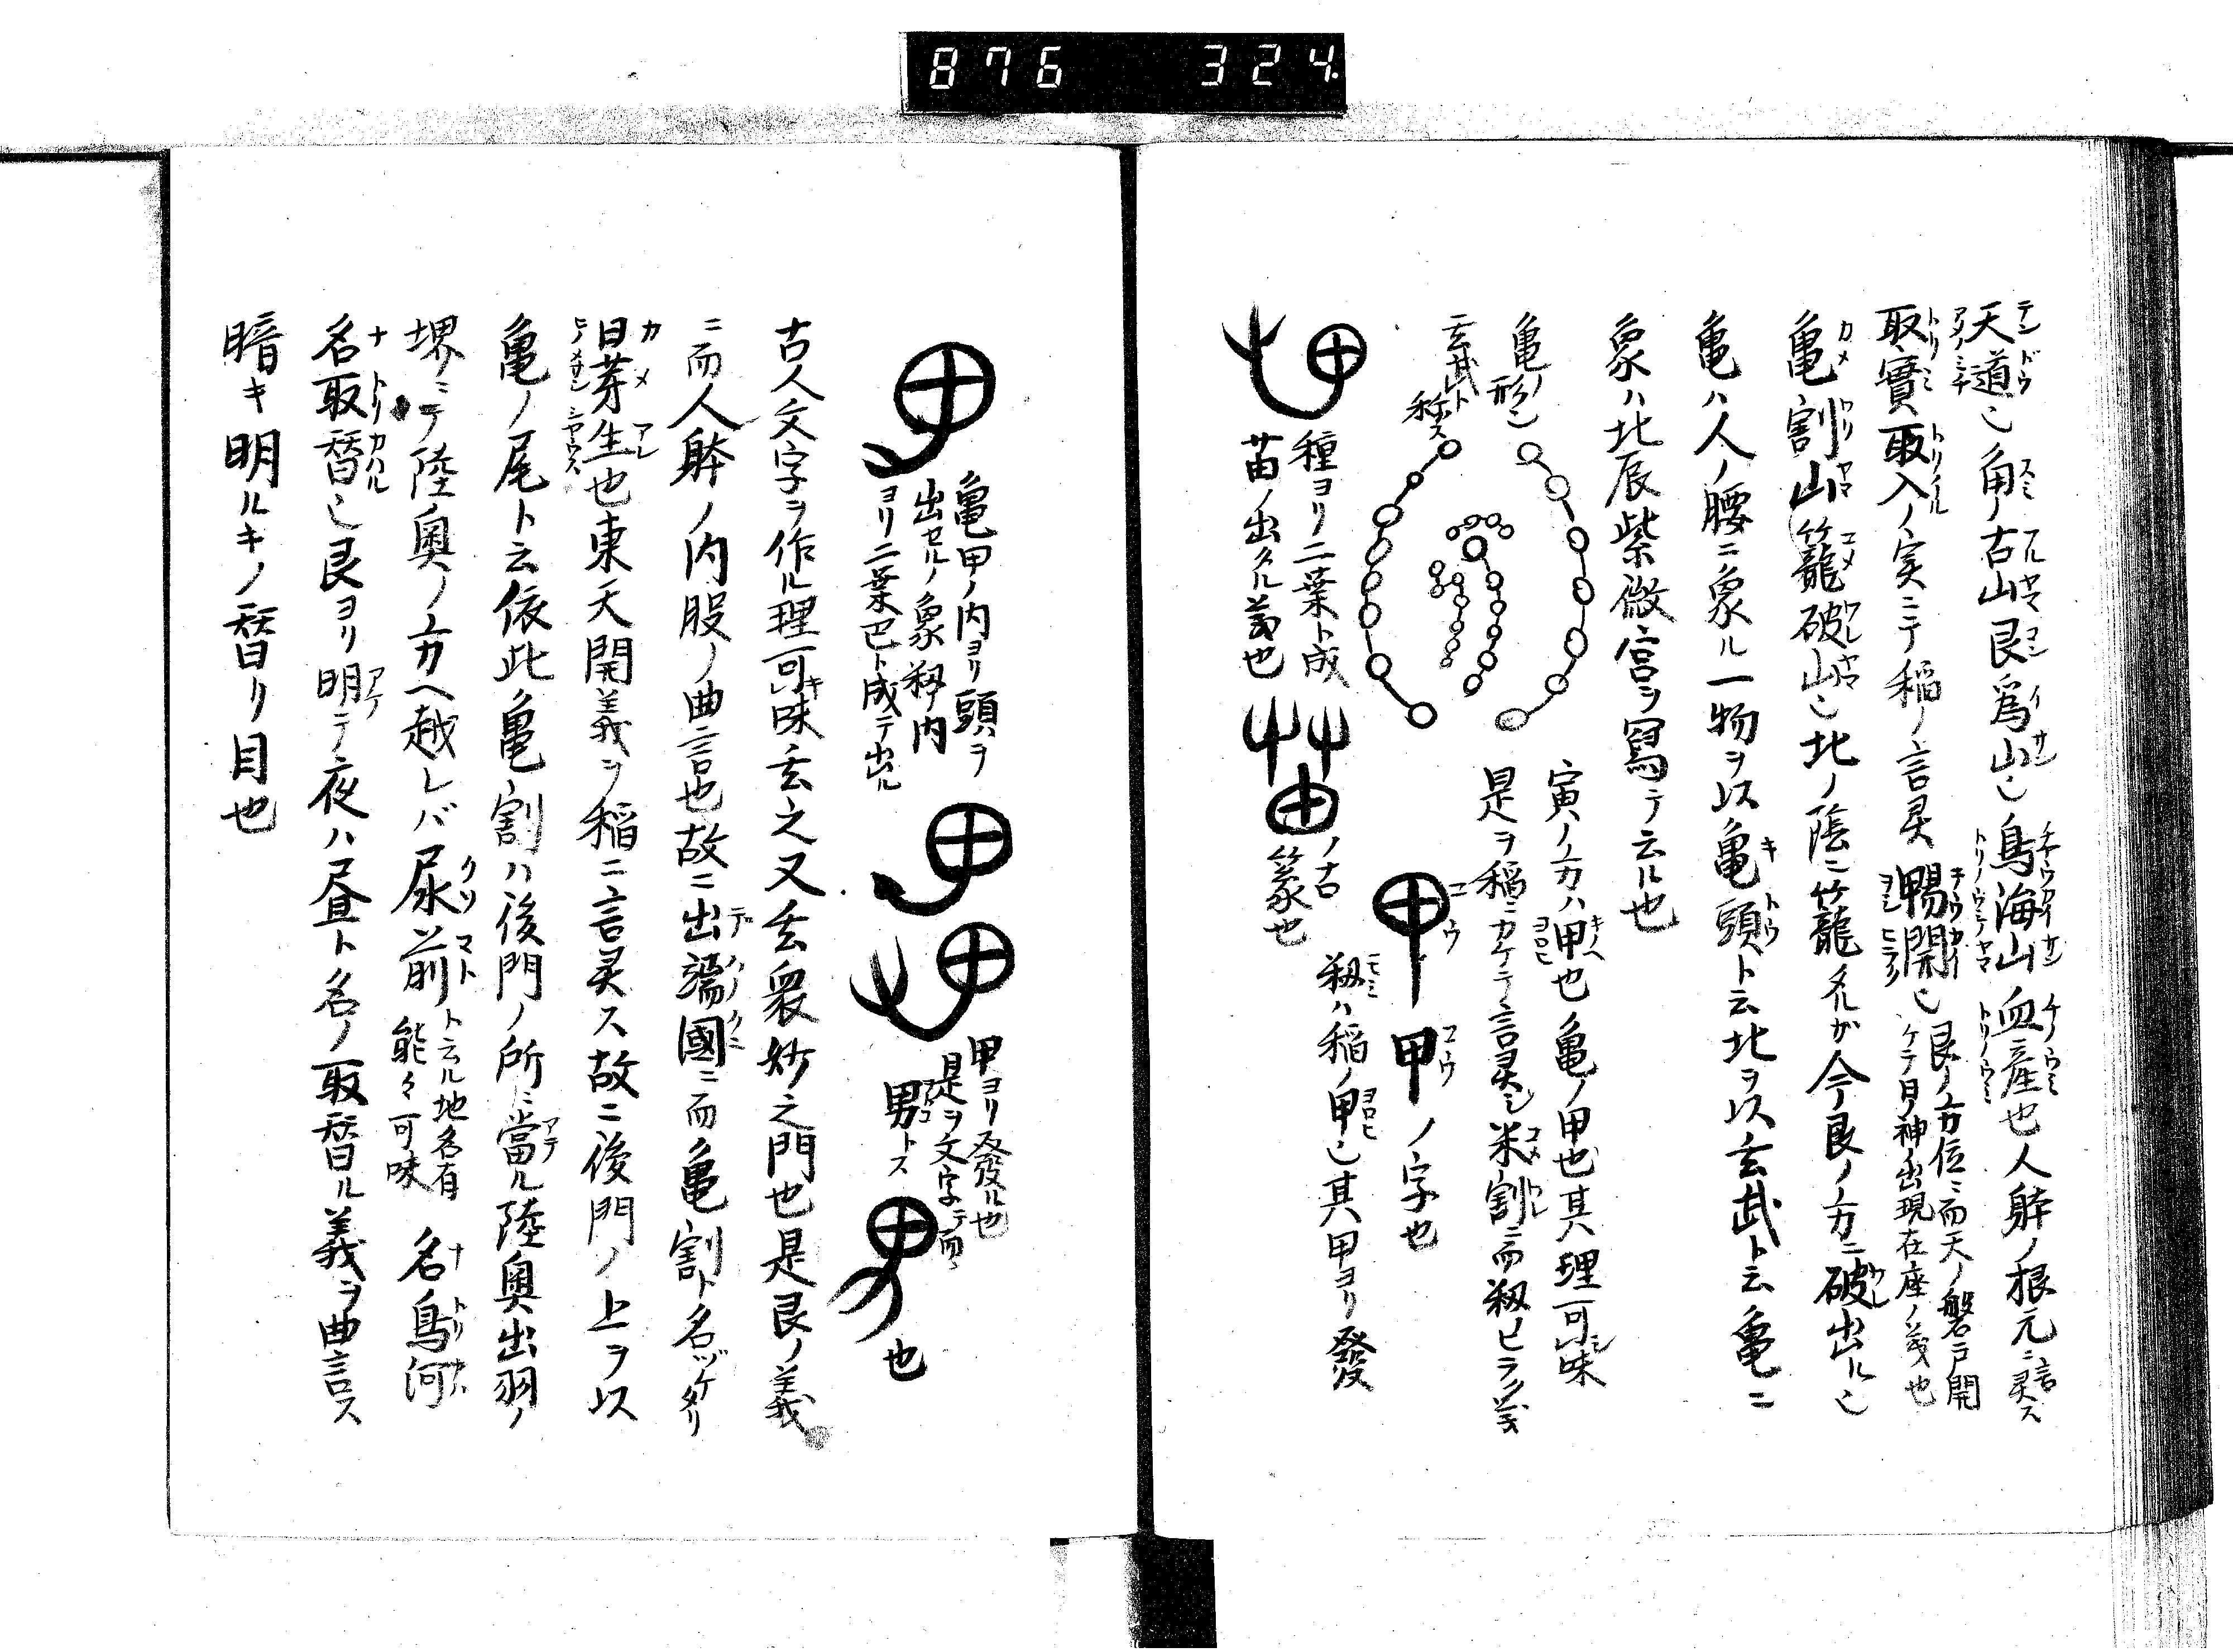 876 324
天道也角ノ古山艮爲山也鳥海山血産也人躰ノ根元ニ言灵ス
取實取入ノ実ニテ稲ノ言灵 鴨開也 艮ノ方位ニ而天ノ磐戸開
ケテ日ノ神出現在座ノ義也
亀割山籠破山也北ノ陰ニ籠タルガ今艮ノ方ニ破出ル也
亀ハ人ノ腰ニ象ル一物ヲ以亀頭ト云北ヲ以玄武ト云亀ニ
象ハ北辰紫微宮ヲ冩テ云ル也
亀ノ形也
玄武ト称ス
寅ノ方ハ甲也亀ノ甲也其理可味
是ヲ稲ニカケテ言灵也米割ニ而籾ヒラク義
甲 甲ノ字也
籾ハ稲ノ甲也其甲ヨリ發
種ヨリ二葉ト成
苗ノ出タル義也
ノ古
篆也
亀甲ノ内ヨリ頭ヲ
出セルノ象籾ノ内
ヨリ二葉巴ト成テ出ル
甲ヨリ發ル也
是ヲ文字ニ而
男トス
也
古人文字ヲ作ル理可味玄之又玄衆妙之門也是艮ノ義
ニ而人躰ノ内股ノ曲言也故ニ出端國ニ而亀割ト名ヅケタリ
日芽生也東天開義ヲ稲ニ言灵ス故ニ後門ノ上ヲ以
亀ノ尾ト云依此亀割ハ後門ノ所ニ當ル陸奥出羽ノ
堺ニテ陸奥ノ方ヘ越レバ尿前ト云ル地名有
能々可味 名鳥河
名取替也艮ヨリ明テ夜ハ昼ト名ノ取替ル義ヲ曲言ス
暗キ明ルキノ替リ目也